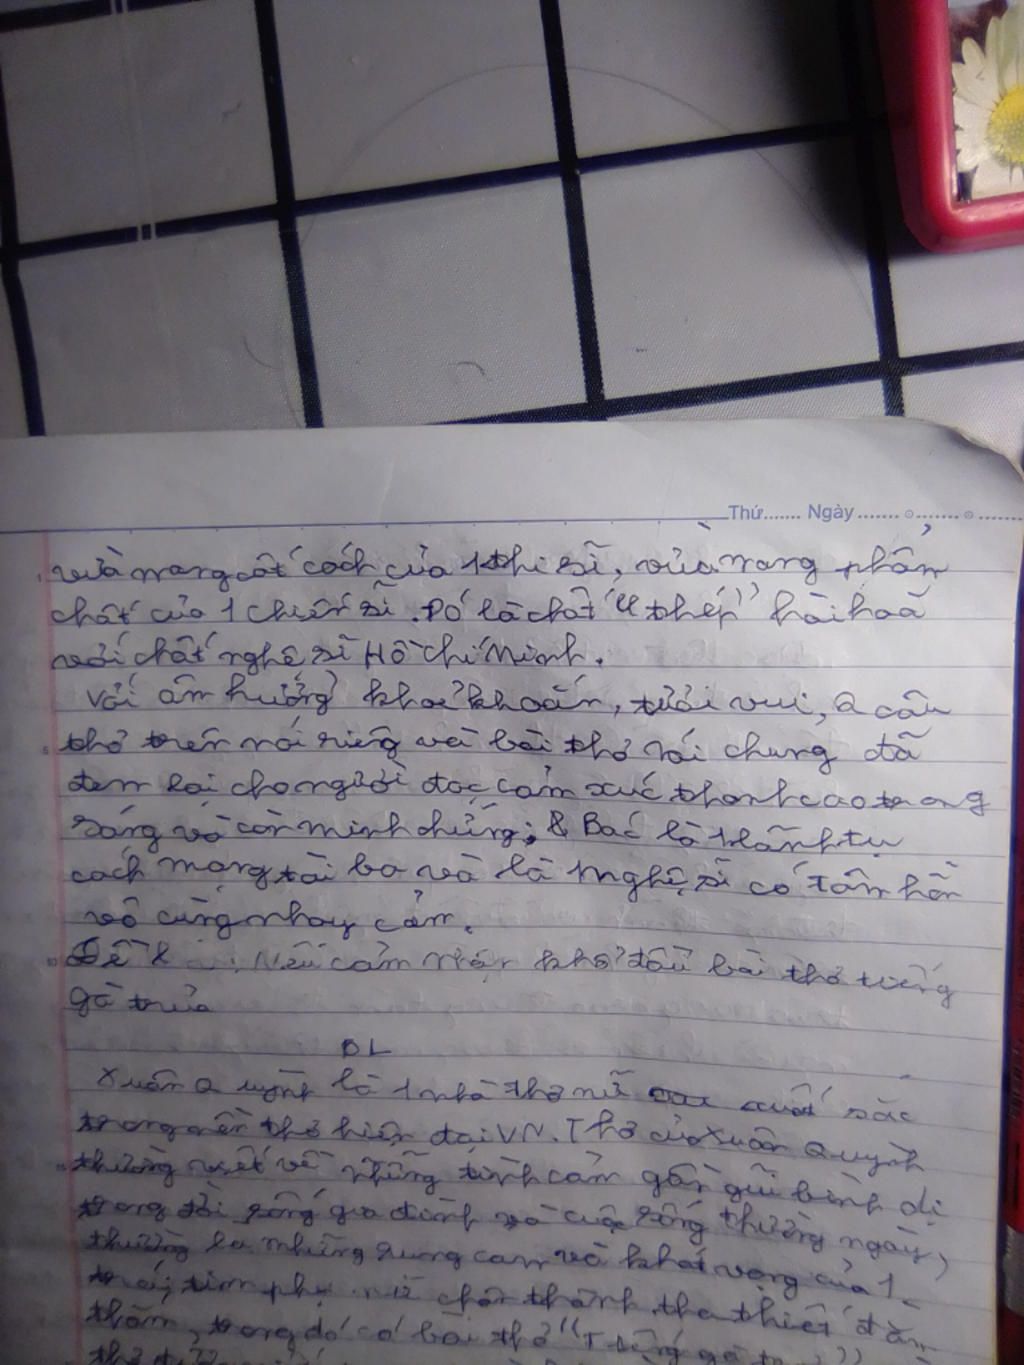 Thứ....... Ngày ....... ........ .......
vừa mang cốt cách của 1 thi sĩ, vừa mang phẩm
chất của 1 chiến sĩ. Đó là chất "thép" hài hoà
với chất nghệ sĩ Hồ Chí Minh.
Với âm hưởng khoẻ khoắn, tươi vui, 2 câu
thơ trên nói riêng và bài thơ nói chung đã
đem lại cho người đọc cảm xúc thanh cao trong
sáng và còn minh chứng: Bác là 1 lãnh tụ
cách mạng tài ba và là 1 nghệ sĩ có tâm hồn
vô cùng nhạy cảm.
Đề 8 Nêu cảm nhận khổ đầu bài thơ tiếng
gà trưa
BL
Xuân Quỳnh là 1 nhà thơ nữ xuất sắc
trong nền thơ hiện đại VN. Thơ của Xuân Quỳnh
thường viết về những tình cảm gần gũi bình dị
trong đời sống gia đình và cuộc sống thường ngày,
thường là những rung cảm và khát vọng của 1
trái tim phụ nữ chân thành tha thiết đằm
thắm, trong đó có bài thơ "Tiếng gà trưa"